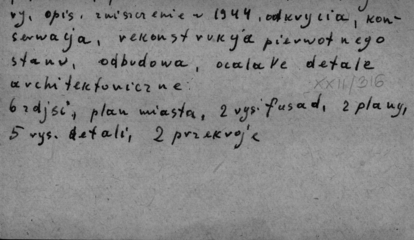 ry, opis. zniszczenie w 1944, odkrycia, kon-
serwacja, rekonstrukcja pierwotnego
stanu, odbudowa, ocalałe detale
architektoniczne
XXII/316
6 zdjęć, plan miasta, 2 rys. fasad, 2 plany,
5 rys. detali, 2 przekroje